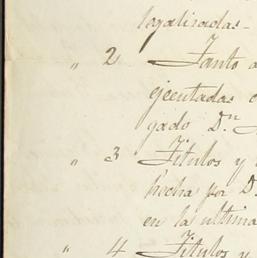 legalisadas -
" 2 Tanto a
ejecutadas
gado Dn
" 3 Titulos y
hecha por D.
en la ultima
" 4 Titulos y